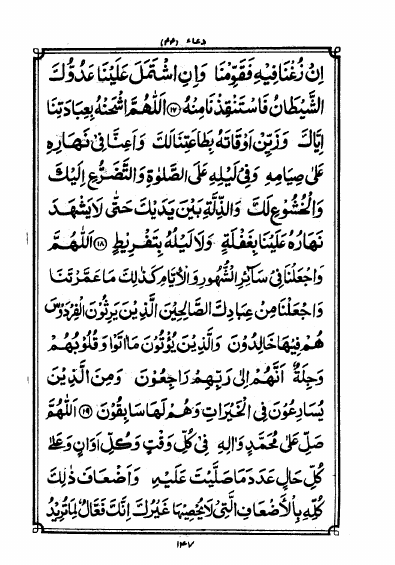 دعاء (۴۴)
اِنْ زُغْنَا فِيهِ فَقَوِّمْنَا وَاِنِ اشْتَمَلَ عَلَيْنَا عَدُوُّكَ
الشَّيْطَانُ فَاسْتَنْقِذْنَا مِنْهُ ۝۱۷ اَللّٰهُمَّ اشْحَنْهُ بِعِبَادَتِنَا
اِيَّاكَ وَزَيِّنْ اَوْقَاتَهُ بِطَاعَتِنَا لَكَ وَاَعِنَّا فِي نَهَارِهِ
عَلٰى صِيَامِهِ وَفِي لَيْلِهِ عَلَى الصَّلٰوةِ وَالتَّضَرُّعِ اِلَيْكَ
وَالْخُشُوْعِ لَكَ وَالذِّلَّةِ بَيْنَ يَدَيْكَ حَتّٰى لَا يَشْهَدَ
نَهَارُهُ عَلَيْنَا بِغَفْلَةٍ وَلَا لَيْلُهُ بِتَفْرِيْطٍ ۝۱۸ اَللّٰهُمَّ
وَاجْعَلْنَا فِي سَآئِرِ الشُّهُوْرِ وَالْاَيَّامِ كَذٰلِكَ مَا عَمَّرْتَنَا
وَاجْعَلْنَا مِنْ عِبَادِكَ الصَّالِحِيْنَ الَّذِيْنَ يَرِثُوْنَ الْفِرْدَوْسَ
هُمْ فِيْهَا خَالِدُوْنَ وَالَّذِيْنَ يُؤْتُوْنَ مَا اٰتَوْا وَقُلُوْبُهُمْ
وَجِلَةٌ اَنَّهُمْ اِلٰى رَبِّهِمْ رَاجِعُوْنَ وَمِنَ الَّذِيْنَ
يُسَارِعُوْنَ فِي الْخَيْرَاتِ وَهُمْ لَهَا سَابِقُوْنَ ۝۱۹ اَللّٰهُمَّ
صَلِّ عَلٰى مُحَمَّدٍ وَاٰلِهِ فِي كُلِّ وَقْتٍ وَكُلِّ اَوَانٍ وَعَلٰى
كُلِّ حَالٍ عَدَدَ مَا صَلَّيْتَ عَلَيْهِ وَاَضْعَافَ ذٰلِكَ
كُلِّهِ بِالْاَضْعَافِ الَّتِي لَا يُحْصِيْهَا غَيْرُكَ اِنَّكَ فَعَّالٌ لِمَا تُرِيْدُ
۱۴۷